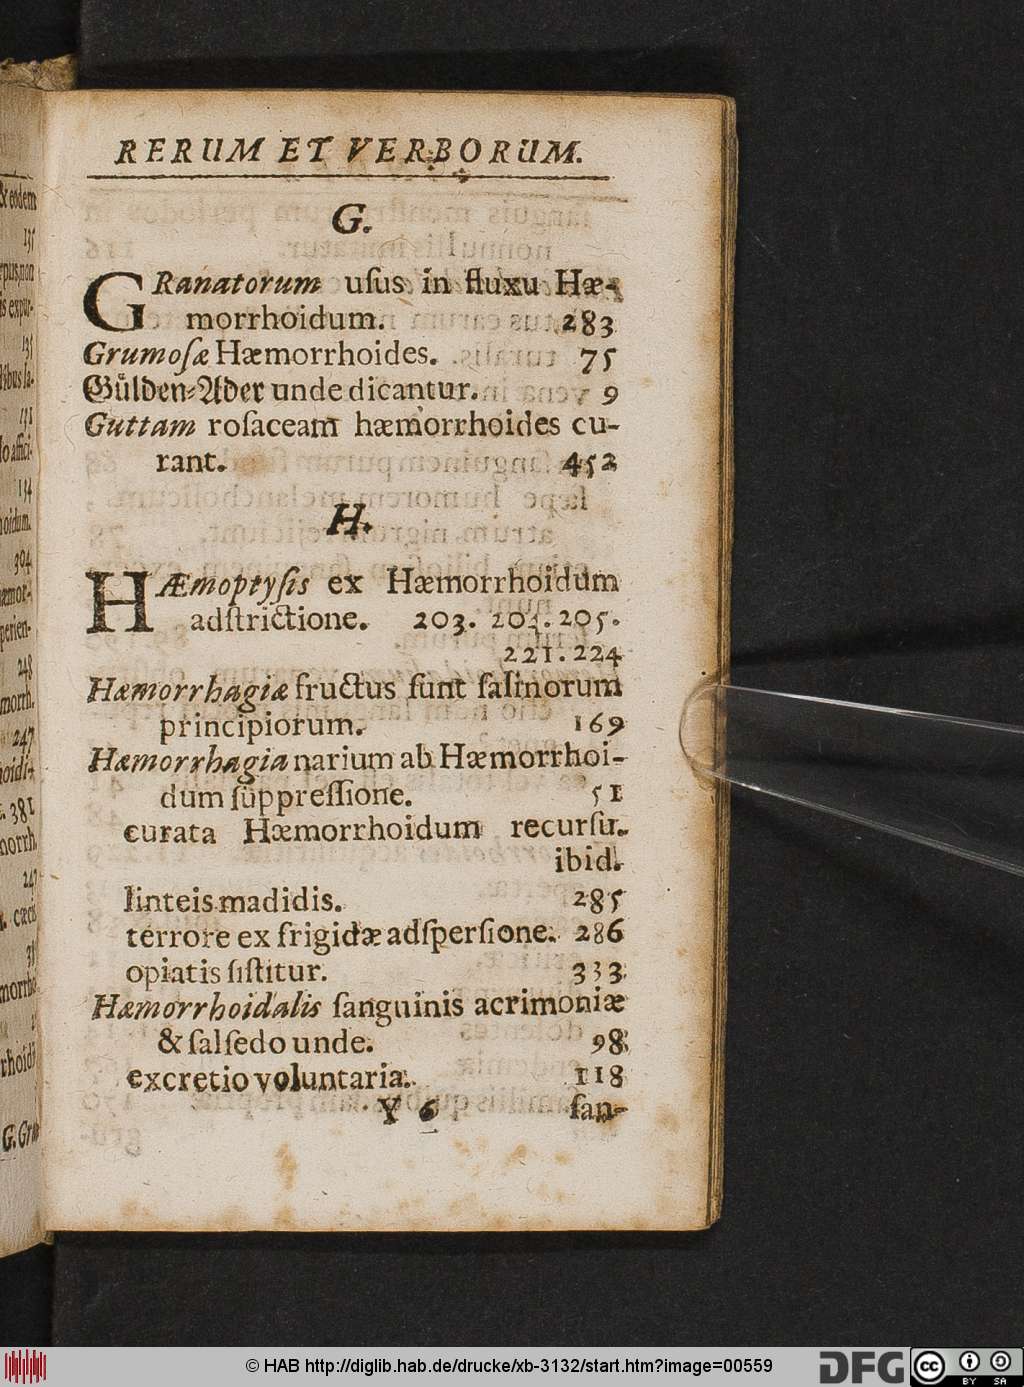 RERUM ET VERBORUM.
G.
GRanatorum uſus in fluxu Hæ-
morrhoidum. 283
Grumoſæ Hæmorrhoides. 75
Gülden-Ader unde dicantur. 9
Guttam roſaceam hæmorrhoides cu-
rant. 452
H.
HÆmoptyſis ex Hæmorrhoidum
adſtrictione. 203. 204. 205.
221. 224
Hæmorrhagiæ fructus ſunt ſalinorum
principiorum. 169
Hæmorrhagia narium ab Hæmorrhoi-
dum ſuppreſſione. 51
curata Hæmorrhoidum recurſu.
ibid.
linteis madidis. 285
terrore ex frigidæ adſperſione. 286
opiatis ſiſtitur. 333
Hæmorrhoidalis ſanguinis acrimoniæ
& ſalſedo unde. 98
excretio voluntaria. 118
Y 6 ſan-
© HAB http://diglib.hab.de/drucke/xb-3132/start.htm?image=00559
DFG
cc BY SA